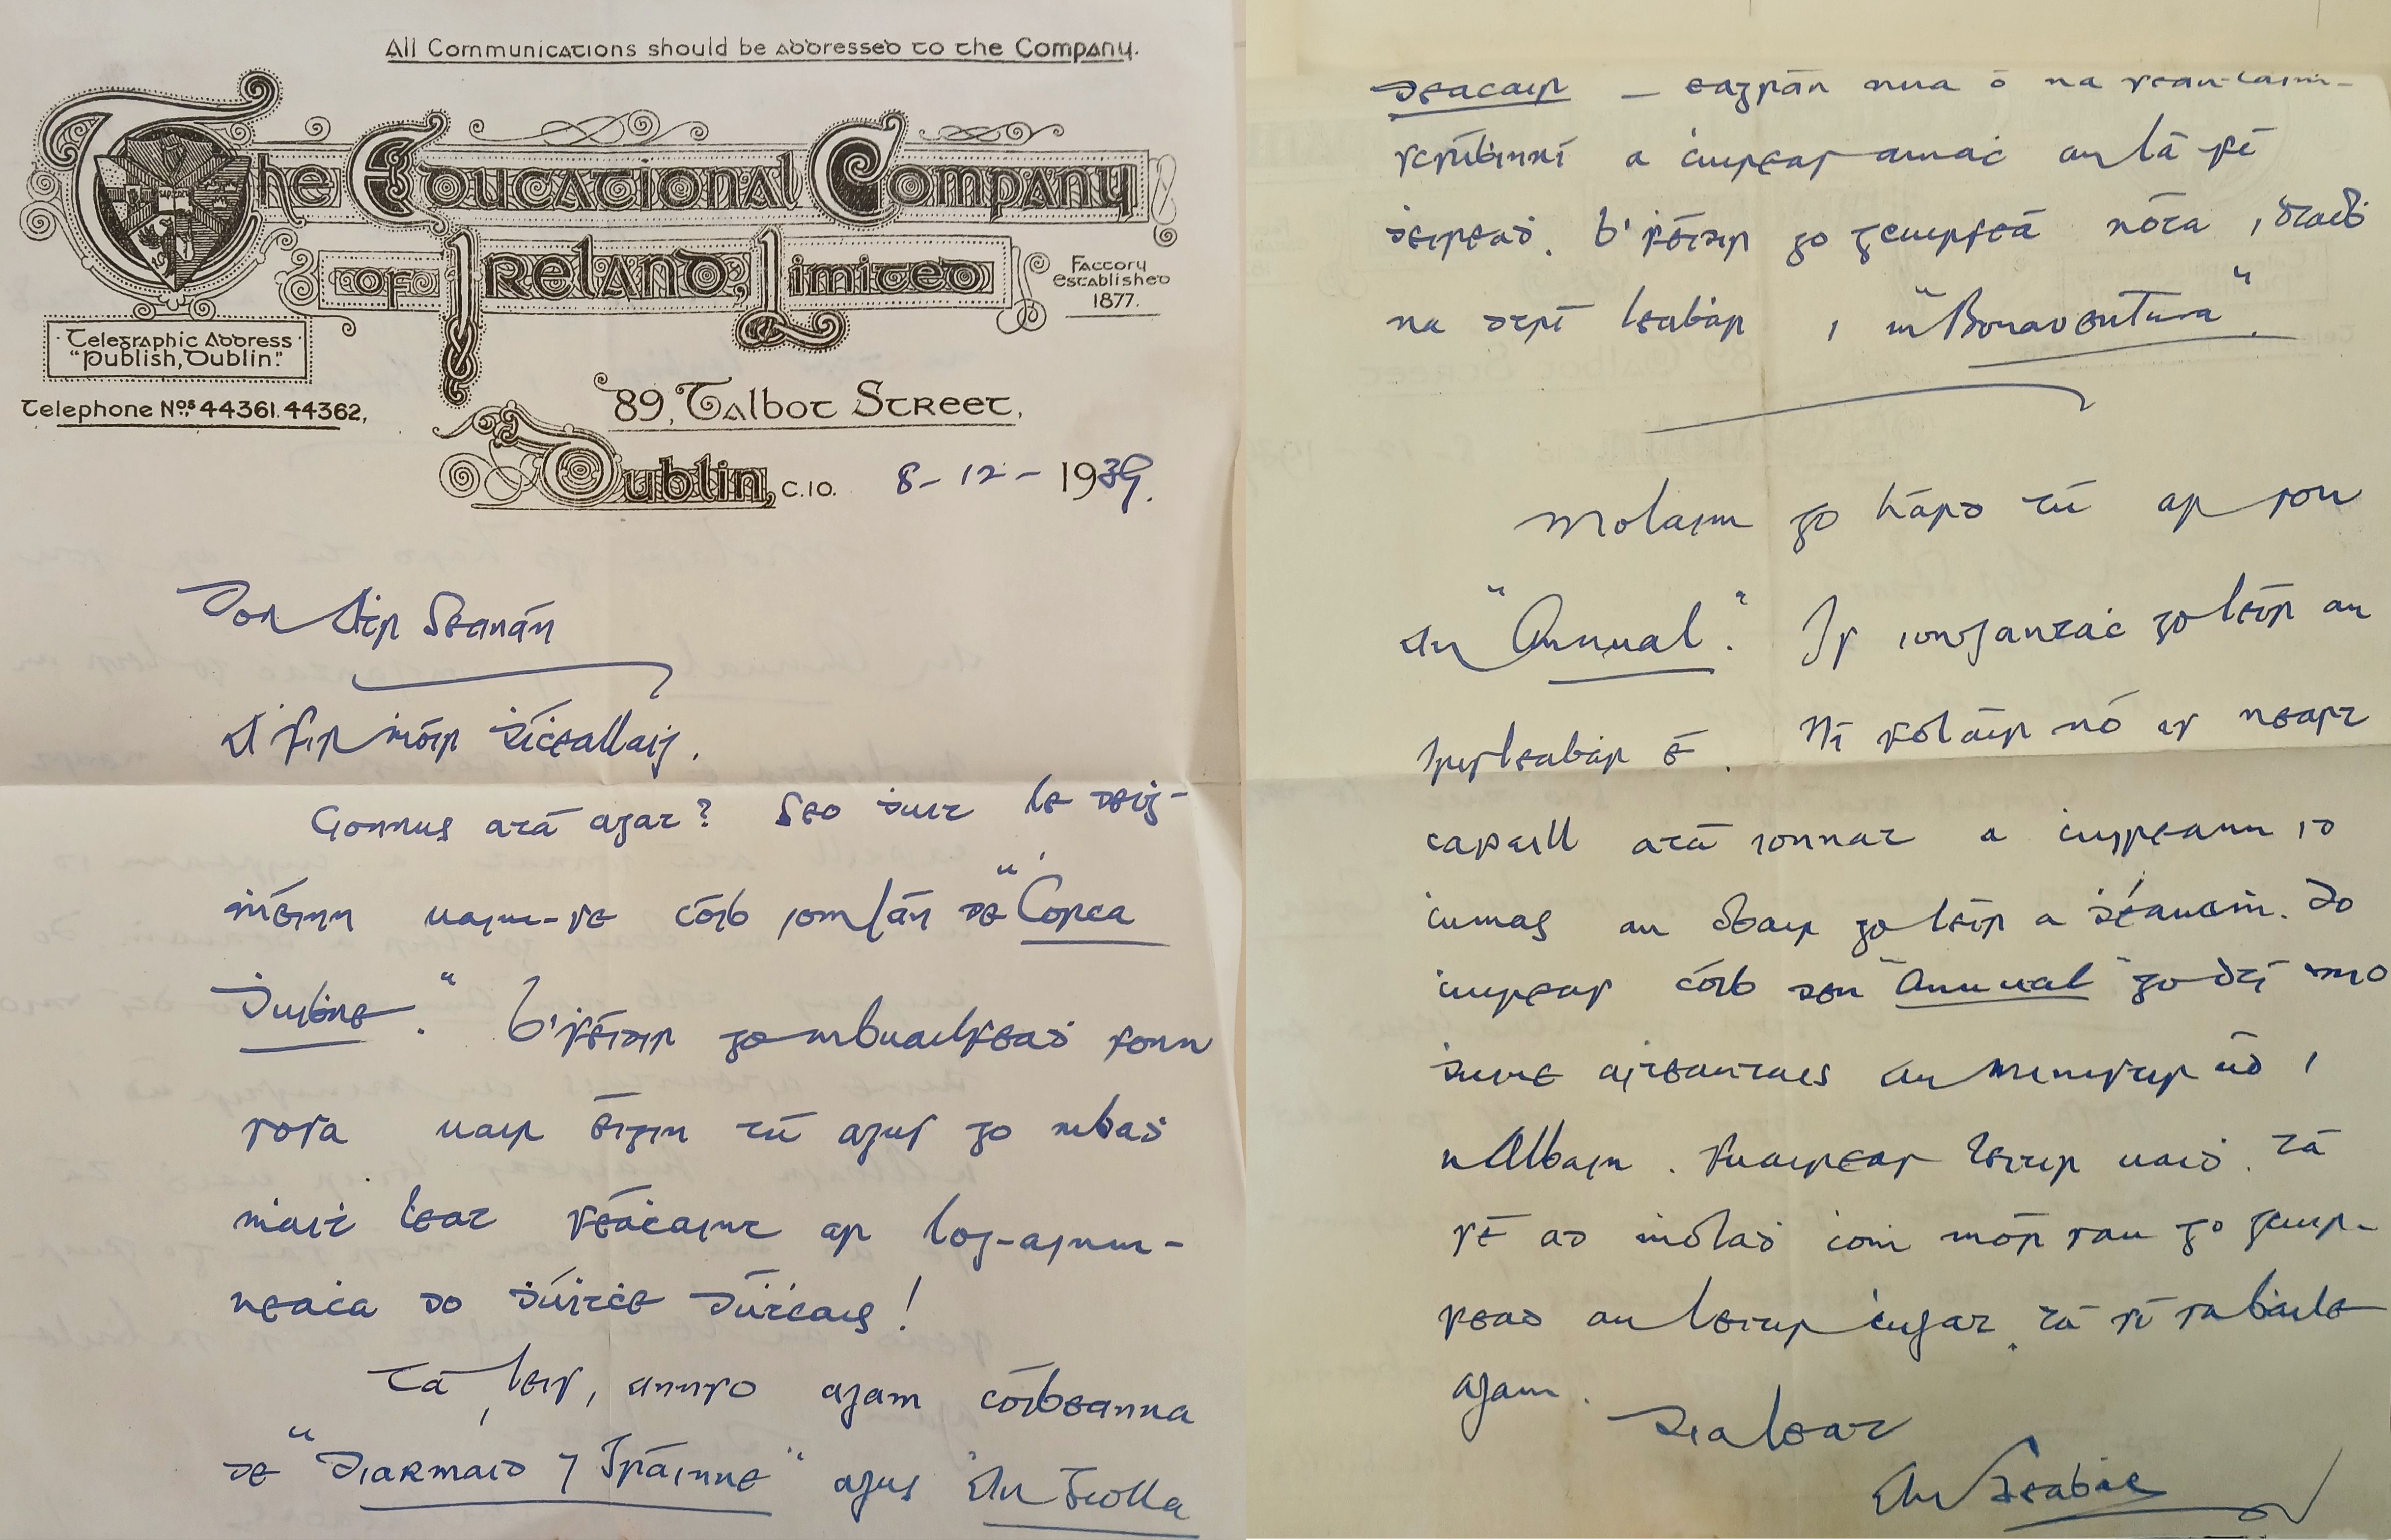 All Communications should be addressed to the Company.
The Educational Company
of Ireland, Limited
Factory
Established
1877.
Telegraphic Address
"Publish, Dublin."
Telephone Nos. 44361. 44362,
89, Talbot Street,
Dublin, C.10. 8-12-1939.
Don Aṫir Seanán
A ḟir ṁóir ḋíċeallaiġ.
Connus atá agat? Seo ḋuit le deiġ-
ṁéinn uaim-se cóib iomlán de "Corca
Ḋuiḃne". B'ḟéidir go mbuailfeaḋ fonn
sosa uair éigin tú agus go mbaḋ
ṁaiṫ leat féaċaint ar log-ainm-
neaċa do ḋúiṫċe dúṫċais!
Tá, leis, annso agam cóibeanna
de "Diarmaid ⁊ Gráinne" agus "An Giolla
Deacair — eagrán nua ó na sean-láiṁ-
scríbinní a ċuireas amaċ an lá fé
ḋeireaḋ. B'ḟéidir go gcuirfeá nóta i dtaoḃ
na dtrí leaḃar i "mBonaventura".
Molaim go hárd tú ar son
an "Annual". Is iongantaċ go léir an
Irisleaḃar é. Ní foláir nó is neart
capaill atá ionnat a ċuireann id
ċumas an obair go léir a ḋéanaṁ. Do
ċuireas cóib den "Annual" go dtí mo
ḋuine aiteantais an Ministir úd i
nAlbain. Fuaireas leitir uaiḋ. Tá
sé ad ṁolaḋ ċoṁ mór san go gcuir-
fead an leitir ċugat. Tá sí sa ḃaile
agam.
Dia leat
An Seaḃac